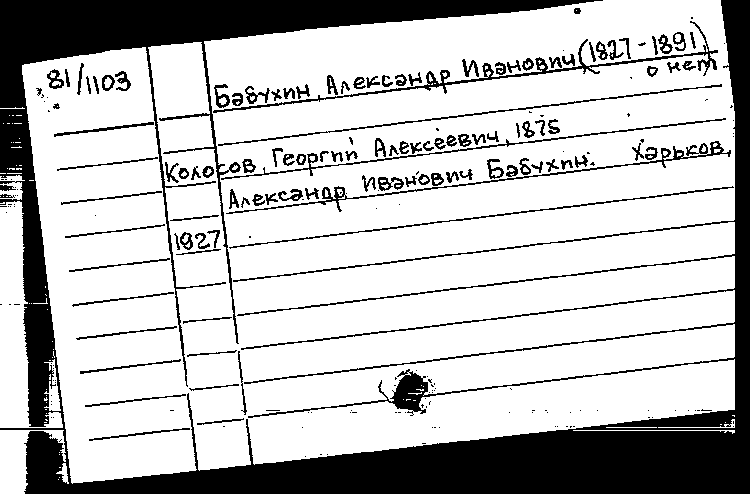 81/1103
Бабухин, Александр Иванович (1827-1891)
о нем
Колосов, Георгий Алексеевич, 1875
Александр Иванович Бабухин. Харьков,
1927.